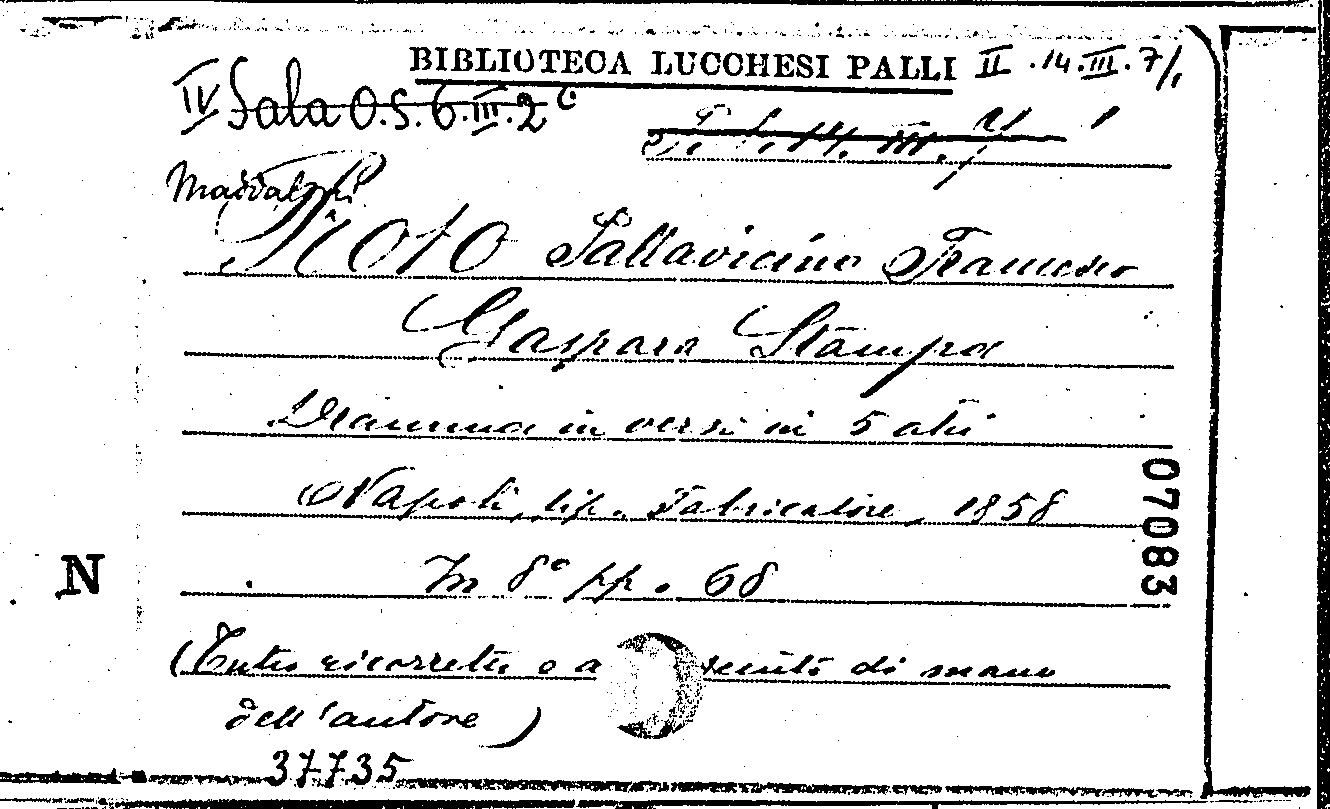 BIBLIOTECA LUCCHESI PALLI II.14.III.7/1
IV Sala O.S.6.III.2
Maddaloni
Proto Pallavicino Francesco
Gaspara Stampa
Dramma in versi in 5 atti
Napoli, tip. Fabricatore, 1858
In 8° pp. 68
(Tutto ricorretto e a di mano
dell'autore)
37735
07083
N